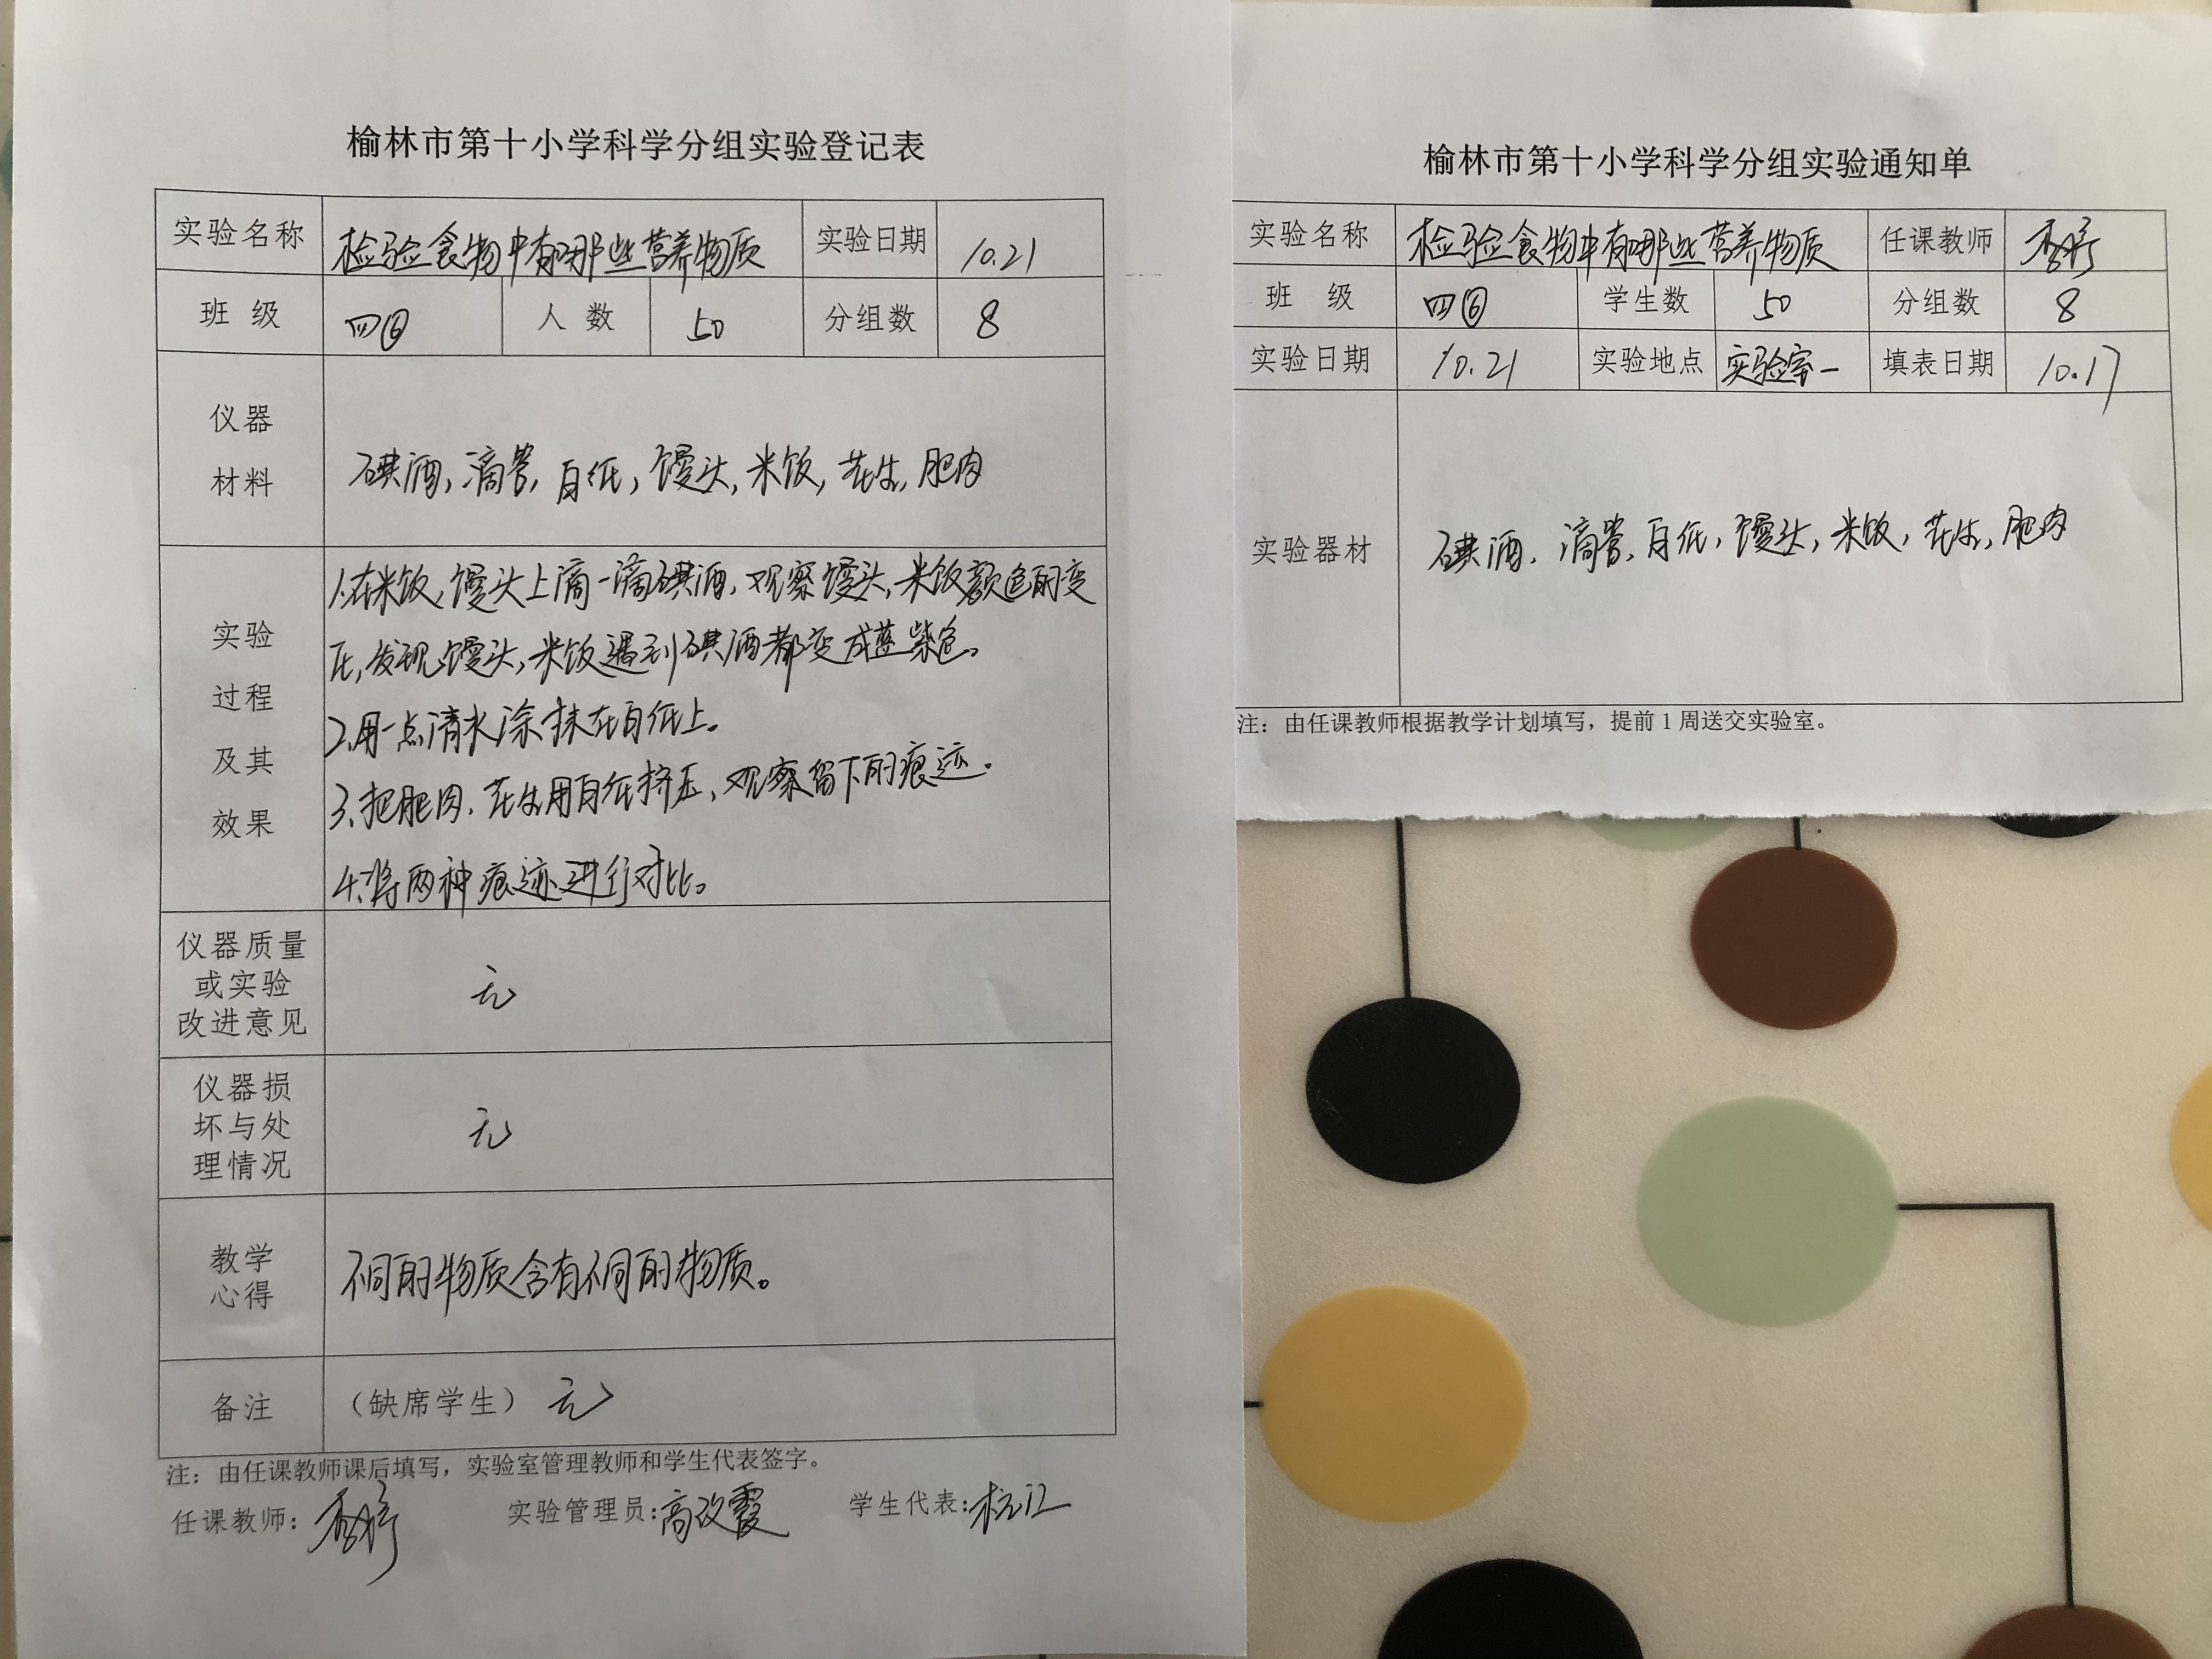 榆林市第十小学科学分组实验登记表
实验名称 检验食物中有哪些营养物质 实验日期 10.21
班 级 四⑥ 人 数 50 分组数 8
仪器
材料
碘酒,滴管,白纸,馒头,米饭,花生,肥肉
实验
过程
及其
效果
1.在米饭,馒头上滴一滴碘酒,观察馒头,米饭颜色的变
化,发现馒头,米饭遇到碘酒都变成蓝紫色。
2.用一点清水涂抹在白纸上。
3.把肥肉.花生用白纸挤压,观察留下的痕迹.
4.将两种痕迹进行对比。
仪器质量
或实验
改进意见
无
仪器损
坏与处
理情况
无
教学
心得
不同的物质含有不同的物质。
备注 (缺席学生) 无
注:由任课教师课后填写,实验室管理教师和学生代表签字。
任课教师: 实验管理员:高改霞 学生代表:
榆林市第十小学科学分组实验通知单
实验名称 检验食物中有哪些营养物质 任课教师
班 级 四⑥ 学生数 50 分组数 8
实验日期 10.21 实验地点 实验室一 填表日期 10.17
实验器材 碘酒.滴管,白纸,馒头,米饭,花生,肥肉
注:由任课教师根据教学计划填写,提前1周送交实验室。